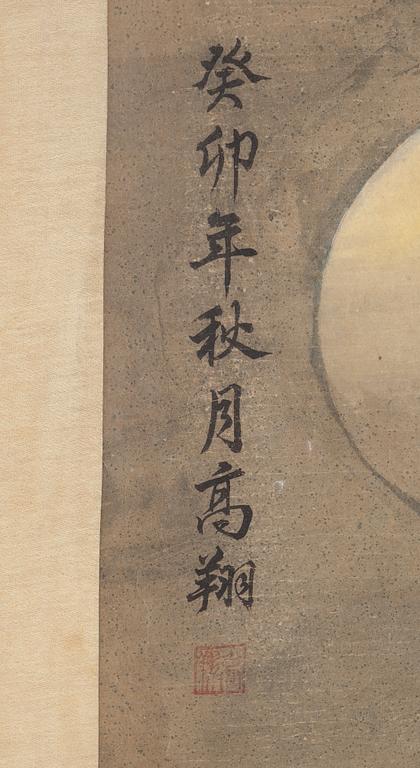 癸卯年秋月高翔